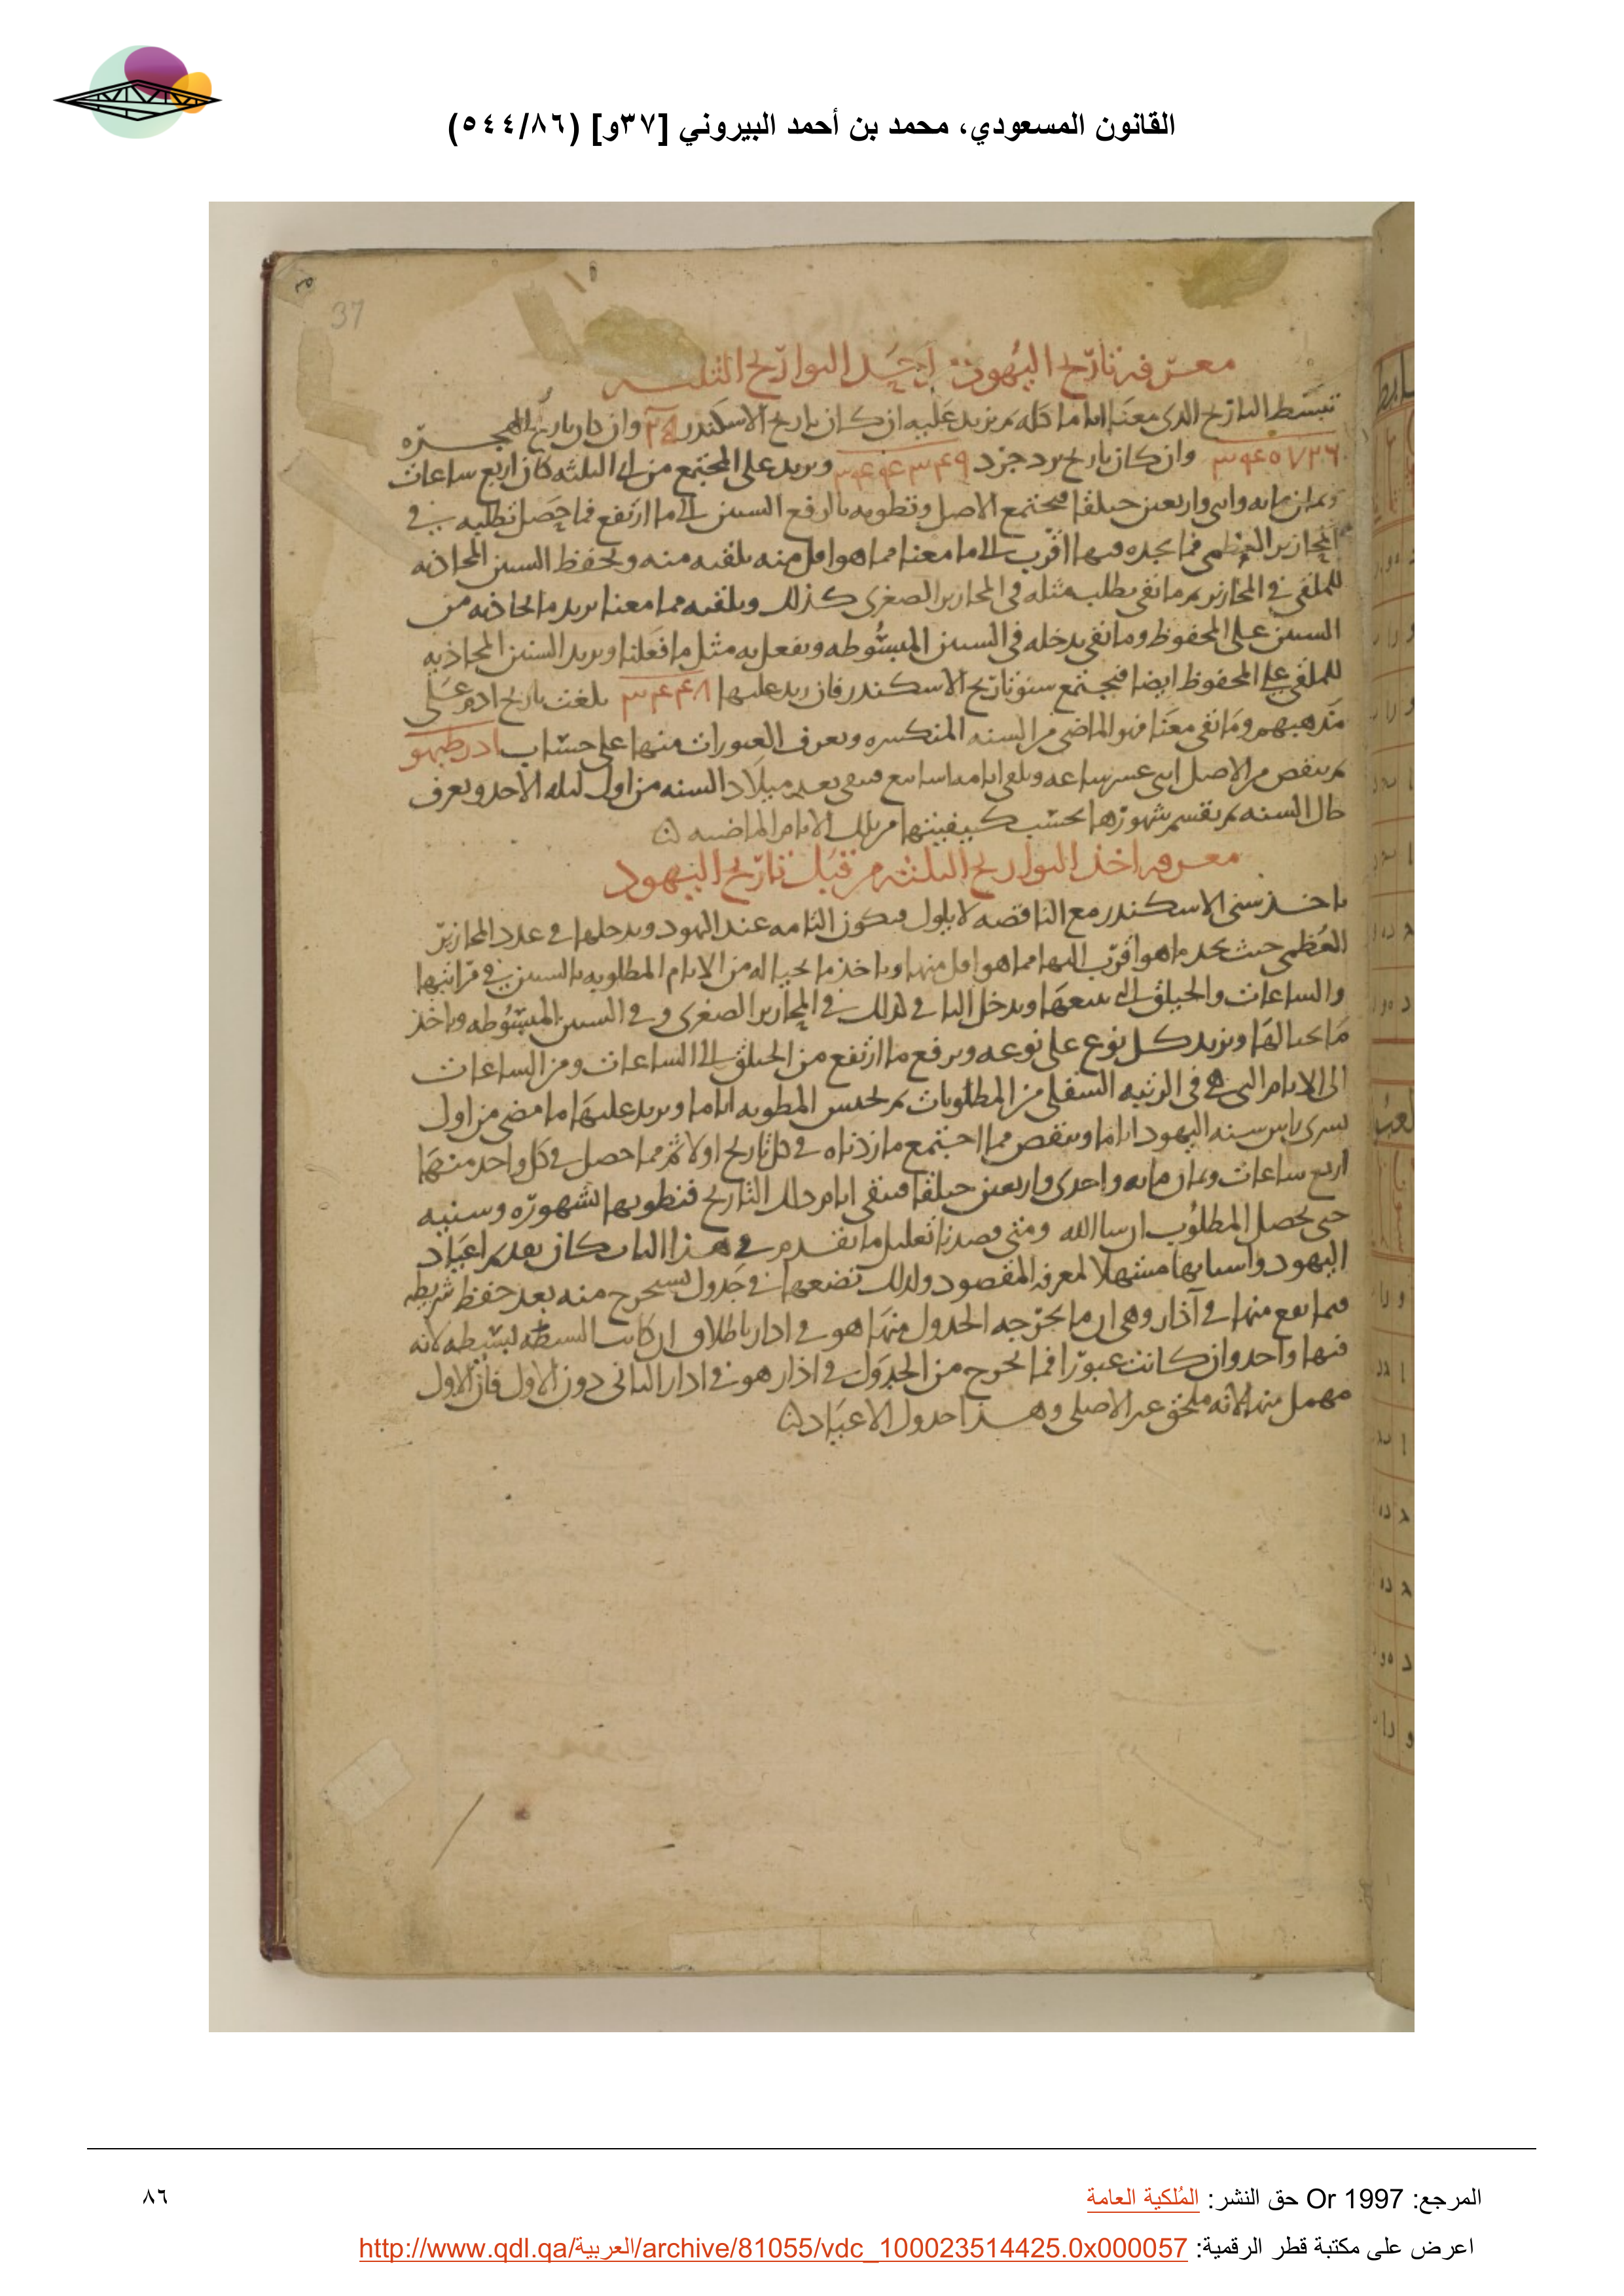 القانون المسعودي، محمد بن أحمد البيروني [٣٧و] (٥٤٤/٨٦)
37
معرفه تاريخ اليهود من احد التواريخ الثلثه
نبسط التاريخ الذى معنا اياما كله ثم نزيد عليه ان كان تاريخ الاسكندر وان كان تاريخ الهجره
وان كان تاريخ يزدجرد ونزيد على المجتمع من اى الثلثه كان اربع ساعات
وثمان مايه واثنى واربعين حيلقا فيجتمع الاصل ونطويه بالرفع السنين الى ما ارتفع فما حصل نطلبه فى
المحازير العظمى فما نجده فيها اقرب الى ما معنا مما هو اقل منه نلقيه منه ونحفظ السنين المحاذيه
للملقى فى المحازير ثم ما بقى نطلب مثله فى المحازير الصغرى كذلك ونلقيه مما معنا نزيد ما يحاذيه من
السنين على المحفوظ وما بقى ندخله فى السنين المبسوطه ونفعل به مثل ما فعلنا ونزيد السنين المحاذيه
للملقى على المحفوظ ايضا فيجتمع سنو تاريخ الاسكندر فان زيد عليها ٣٤٤٨ بلغت تاريخ ادم على
مذهبهم وما بقى معنا فهو الماضى من السنه المنكسره ونعرف العبورات منها على حساب ادرطبهو
ثم ننقص من الاصل اثنى عشر ساعه ونلقى اياما اسابيع فيبقى بعد ميلاد السنه من اول ليله الاحد ونعرف
حال السنه ثم نقسم شهورها بحسب كيفيتها من تلك الايام الماضيه
معرفه اخذ التواريخ الثلثه من قبل تاريخ اليهود
ناخذ سنى الاسكندر مع الناقصه لايلول فيكون التامه عند اليهود وندخلها فى عدد المحازير
العظمى حيث نجد ما هو اقرب اليها مما هو اقل منها وناخذ ما بحياله من الايام المطلوبه بالسنين فى مراتبها
والساعات والحيلق التى تتبعها وندخل الباقى كذلك فى المحازير الصغرى وفى السنين المبسوطه وناخذ
ما بحيالها ونزيد كل نوع على نوعه ونرفع ما ارتفع من الحيلق الى الساعات ومن الساعات
الى الايام التى هى فى الرتبه السفلى من المطلوبات ثم نجنس المطويه اياما ونزيد عليها ما مضى من اول
تسرى راس سنه اليهود اياما وننقص مما اجتمع ما زدناه فى كل تاريخ اولا ثم مما حصل فى كل واحد منها
اربع ساعات وثمان مايه واحدى واربعين حيلقا فيبقى ايام ذلك التاريخ فنطويها لشهوره وسنيه
حتى يحصل المطلوب ان شا الله ومتى قصدنا تعليل ما تقدم فى هذا الباب كان بعد ثم اعياد
اليهود واسبابها مشهلا لمعرفه المقصود ولذلك نضعها فى جدول يستخرج منه بعد حفظ شريطه
فيما يقع منها فى آذار وهى ان ما يخرجه الجدول منها هو فى اذار باطلاق ان كانت السنه بسيطه لانه
فيها واحد وان كانت عبورا فما يخرج من الجدول فى اذار هو فى اذار الثانى دون الاول فان الاول
مهمل منها لانه ملحق غير الاصلى وهذا جدول الاعياد
المرجع: Or 1997 حق النشر: المُلكية العامة
٨٦
اعرض على مكتبة قطر الرقمية: http://www.qdl.qa/العربية/archive/81055/vdc_100023514425.0x000057